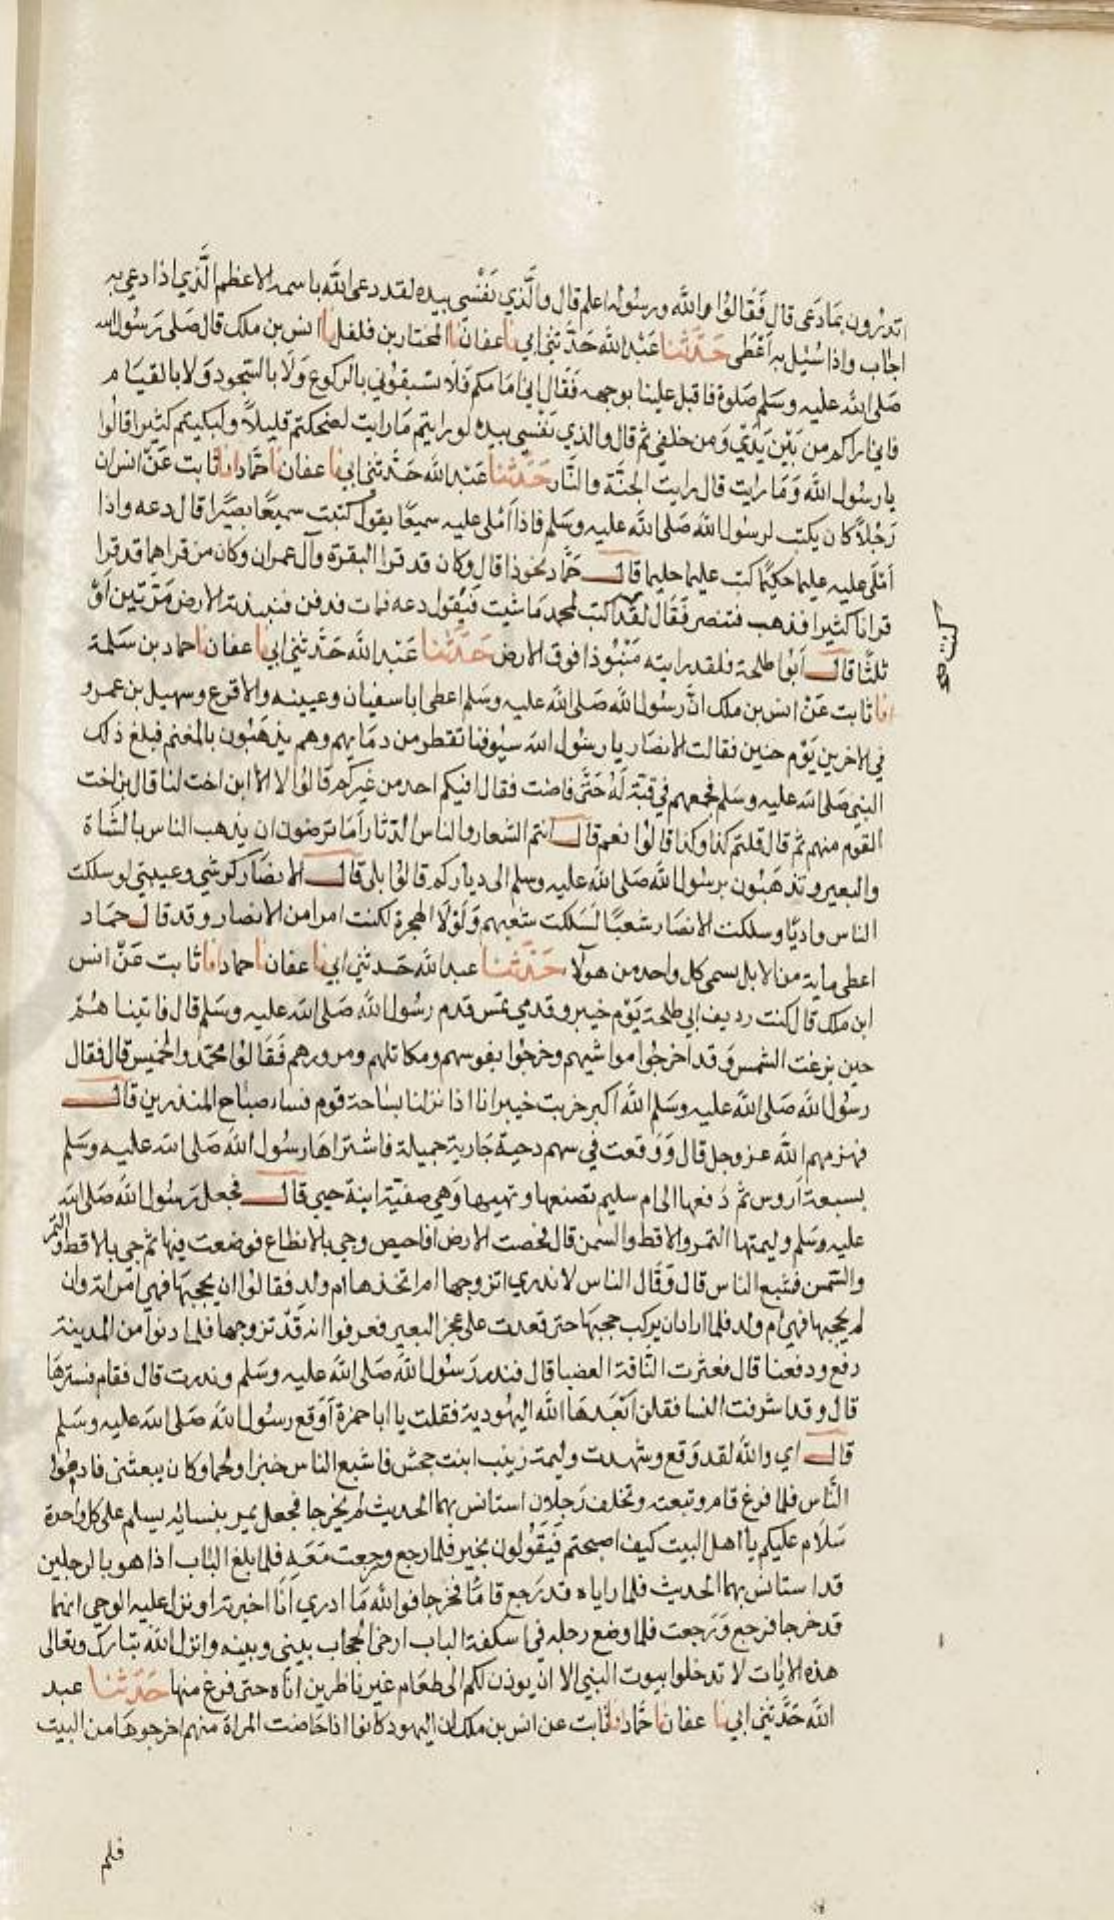 اتدرون بما دعى قال فقالوا والله ورسوله اعلم قال والذي نفسي بيده لقد دعى الله باسمه الاعظم الذي اذا دعي به
اجاب واذا سيل به اعطى حدثنا عبد الله حدثني ابي نا عفان نا المختار بن فلفل نا انس بن ملك قال صلى رسول الله
صلى الله عليه وسلم صلوة فاقبل علينا بوجهه فقال اني امامكم فلا تسبقوني بالركوع ولا بالسجود ولا بالقيام
فاني اراكم من بين يدي ومن خلفي ثم قال والذي نفسي بيده لو رايتم ما رايت لضحكتم قليلا ولبكيتم كثيرا قالوا
يا رسول الله وما رايت قال رايت الجنة والنار حدثنا عبد الله حدثني ابي نا عفان نا حماد انا ثابت عن انس ان
رجلا كان يكتب لرسول الله صلى الله عليه وسلم فاذا املى عليه سميعا يقول كتبت سميعا بصيرا قال دعه واذا
املى عليه عليما حكيما كتب عليما حليما قال حماد نحو ذا قال وكان قد قرا البقرة وآل عمران وكان من قراهما قد قرا
قرانا كثيرا فذهب فتنصر فقال لقد كتبت لمحمد ما شيت فيقول دعه فمات فدفن فنبذته الارض مرتين او
ثلثا قال ابوا طلحة فلقد رايته منبوذا فوق الارض حدثنا عبد الله حدثني ابي نا عفان نا حماد بن سلمة
انا ثابت عن انس بن ملك ان رسول الله صلى الله عليه وسلم اعطى ابا سفيان وعيينه والاقرع وسهيل بن عمرو
في الاخرين يوم حنين فقالت الانصار يا رسول الله سيوفنا تقطر من دمايهم وهم يذهبون بالمغنم فبلغ ذلك
النبي صلى الله عليه وسلم فجمعهم في قبة له حتى فاضت فقال افيكم احد من غيركم قالوا لا الا ابن اخت لنا قال بن اخت
القوم منهم ثم قال قلتم كذا وكذا قالوا نعم قال انتم الشعار والناس الدثار اما ترضون ان يذهب الناس بالشاة
والبعير وتذهبون برسول الله صلى الله عليه وسلم الى دياركم قالوا بلى قال الانصار كرشي وعيبتي لو سلكت
الناس واديا وسلكت الانصار شعبا لسلكت شعبهم ولولا الهجرة لكنت امرا من الانصار وقد قال حماد
اعطى ماية من الابل يسمي كل واحد من هولا حدثنا عبد الله حدثني ابي نا عفان نا حماد انا ثابت عن انس
ابن ملك قال كنت رديف ابي طلحة يوم خيبر وقدمي تمس قدم رسول الله صلى الله عليه وسلم قال فاتيناهم
حين بزغت الشمس وقد اخرجوا مواشيهم وخرجوا بفوسهم ومكاتلهم ومرورهم فقالوا محمد والخميس قال فقال
رسول الله صلى الله عليه وسلم الله اكبر خربت خيبر انا اذا نزلنا بساحة قوم فساء صباح المنذرين قال
فهزمهم الله عز وجل قال ووقعت في سهم دحية جارية جميلة فاشتراها رسول الله صلى الله عليه وسلم
بسبعة اروس ثم دفعها الى ام سليم تصنعها وتهييها وهي صفية ابنة حيي قال فجعل رسول الله صلى الله
عليه وسلم وليمتها التمر والاقط والسمن قال فحصت الارض افاحيص وجي بالانطاع فوضعت فيها ثم جي بالاقط والتمر
والسمن فشبع الناس قال وقال الناس لا ندري اتزوجها ام اتخذها ام ولد فقالوا ان يحجبها فهي امراته وان
لم يحجبها فهي ام ولد فلما اراد ان يركب حجبها حتى قعدت على عجز البعير فعرفوا انه قد تزوجها فلما دنوا من المدينة
دفع ودفعنا قال فعثرت الناقة العضبا قال فندر رسول الله صلى الله عليه وسلم وندرت قال فقام فسترها
قال وقد اشرفت النسا فقلن ابعد الله اليهودية فقلت يا ابا حمزة اوقع رسول الله صلى الله عليه وسلم
قال اي والله لقد وقع وشهدت وليمة زينب ابنت جحش فاشبع الناس خبزا ولحما وكان يبعثني فادعوا
الناس فلما فرغ قام وتبعته وتخلف رجلان استانس بهما الحديث لم يخرجا فجعل يمر بنسائه يسلم على كل واحدة
سلام عليكم يا اهل البيت كيف اصبحتم فيقولون بخير فلما رجع ورجعت معه فلما بلغ الباب اذا هو بالرجلين
قد استانس بهما الحديث فلما راياه قد رجع قاما فخرجا فوالله ما ادري انا اخبرته او نزل عليه الوحي انهما
قد خرجا فرجع ورجعت فلما وضع رجله في اسكفة الباب ارخى الحجاب بيني وبينه وانزل الله تبارك وتعالى
هذه الايات لا تدخلوا بيوت النبي الا ان يوذن لكم الى طعام غير ناظرين اناه حتى فرغ منها حدثنا عبد
الله حدثني ابي نا عفان نا حماد انا ثابت عن انس بن ملك ان اليهود كانوا اذا حاضت المراة منهم اخرجوها من البيت
فلم